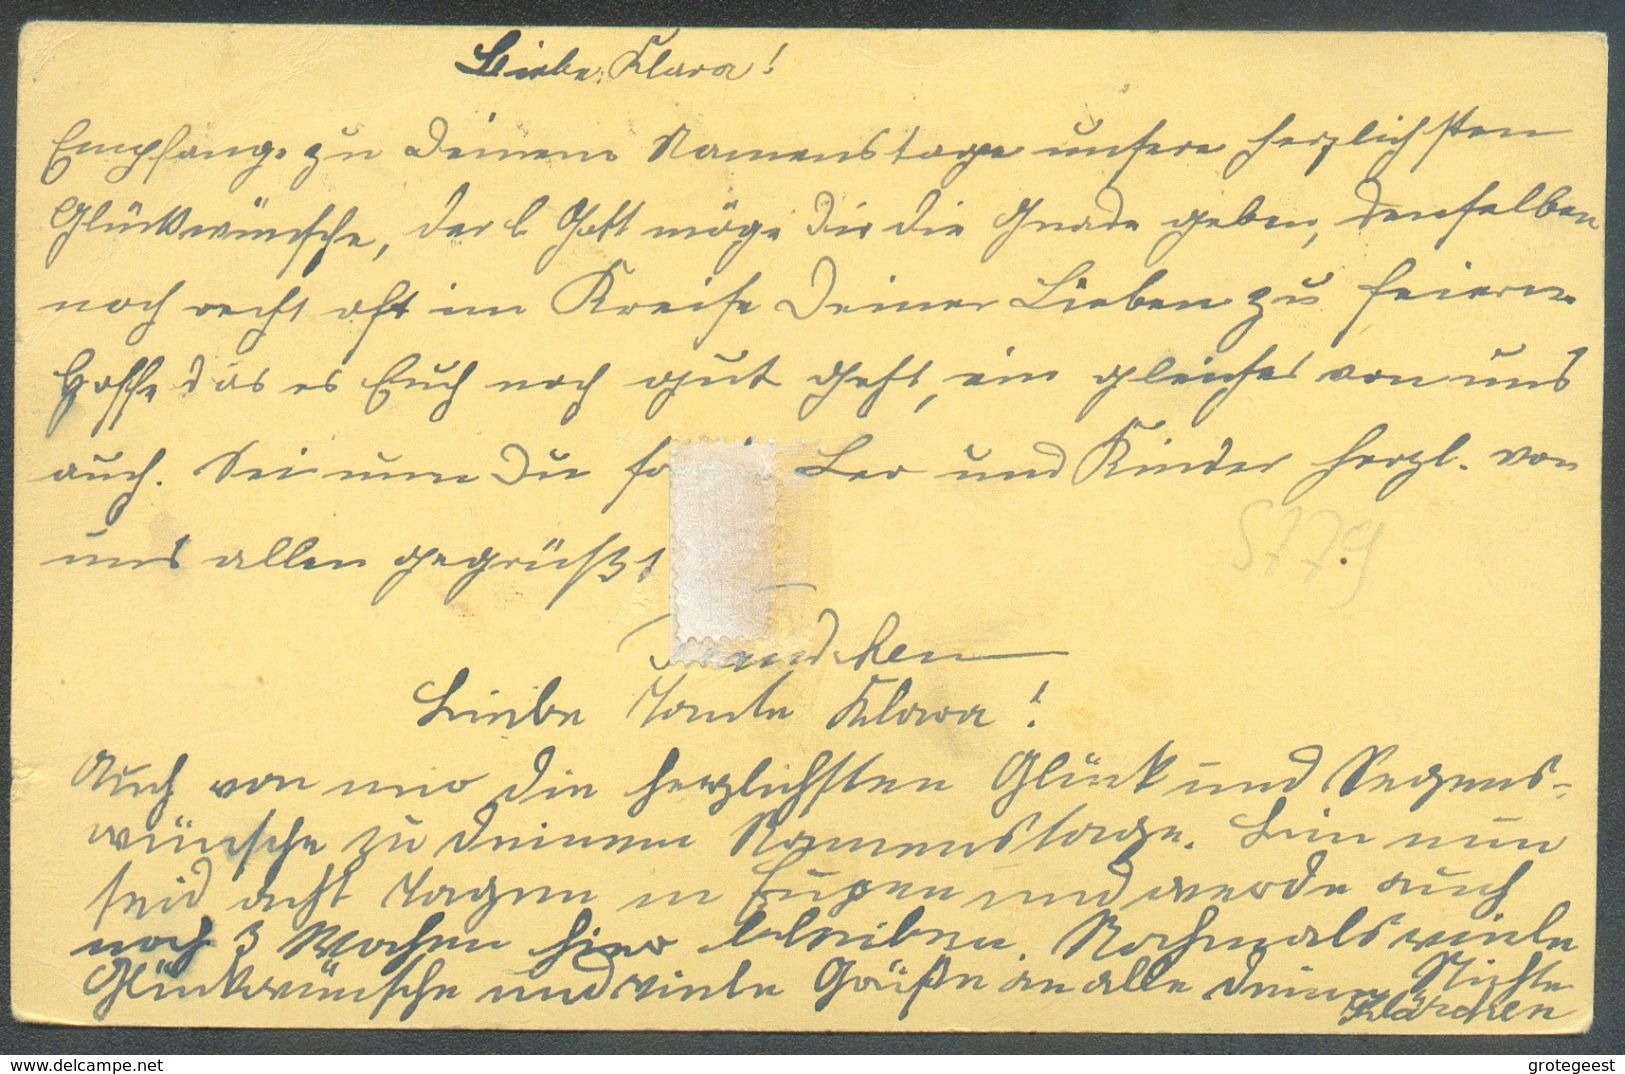 Liebe Klara!
Empfange zu Deinem Namenstage unsere herzlichsten
Glückwünsche, der l. Gott möge Dir die Gnade geben, denselben
noch recht oft im Kreise Deiner Lieben zu feiern.
Hoffe das es Euch noch gut geht, ein gleiches von uns
auch. Sei nun Du so Leo und Kinder herzl. von
uns allen gegrüßt
Liebe Tante Klara!
Auch von mir die herzlichsten Glück und Segens-
wünsche zu deinem Namenstage. Bin nun
seid acht Tagen in Eupen und werde auch
noch 3 Wochen hier bleiben. Nochmals viele
Glückwünsche und viele Grüße an alle deine Nichte
Klärchen
S179
delcampe.net
grotegeest